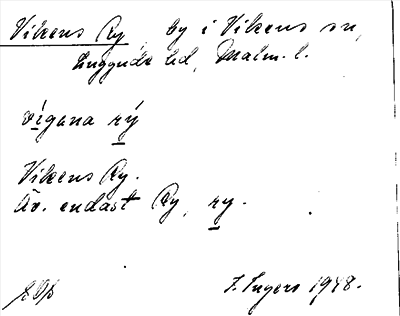 Vikens Ry, by i Vikens sn,
Luggude hd, Malm. l.
vígana rý
Vikens Ry.
Äv. endast Ry, ry.
I. Ingers 1948.